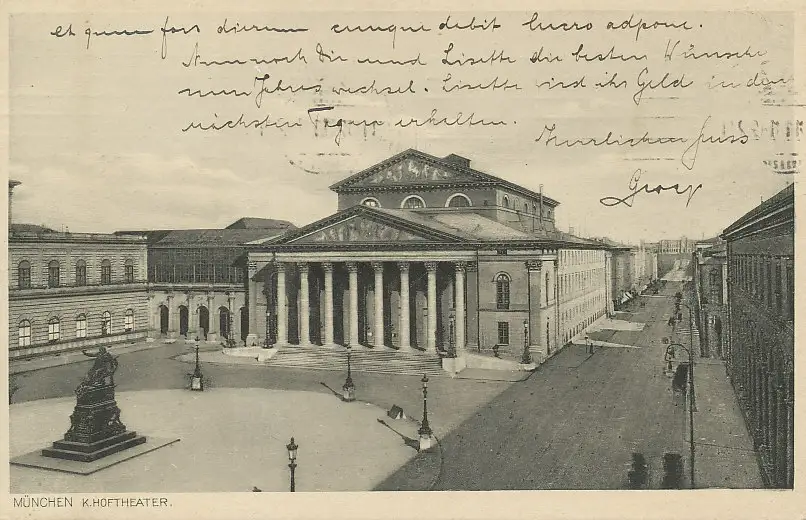 et quem fors dierum cumque dabit lucro adpone.
Nun noch Dir und Lisette die besten Wünsche
zum Jahreswechsel. Lisette wird ihr Geld in den
nächsten Tagen erhalten.
Herzlichen Kuss
Georg
MÜNCHEN K.HOFTHEATER.